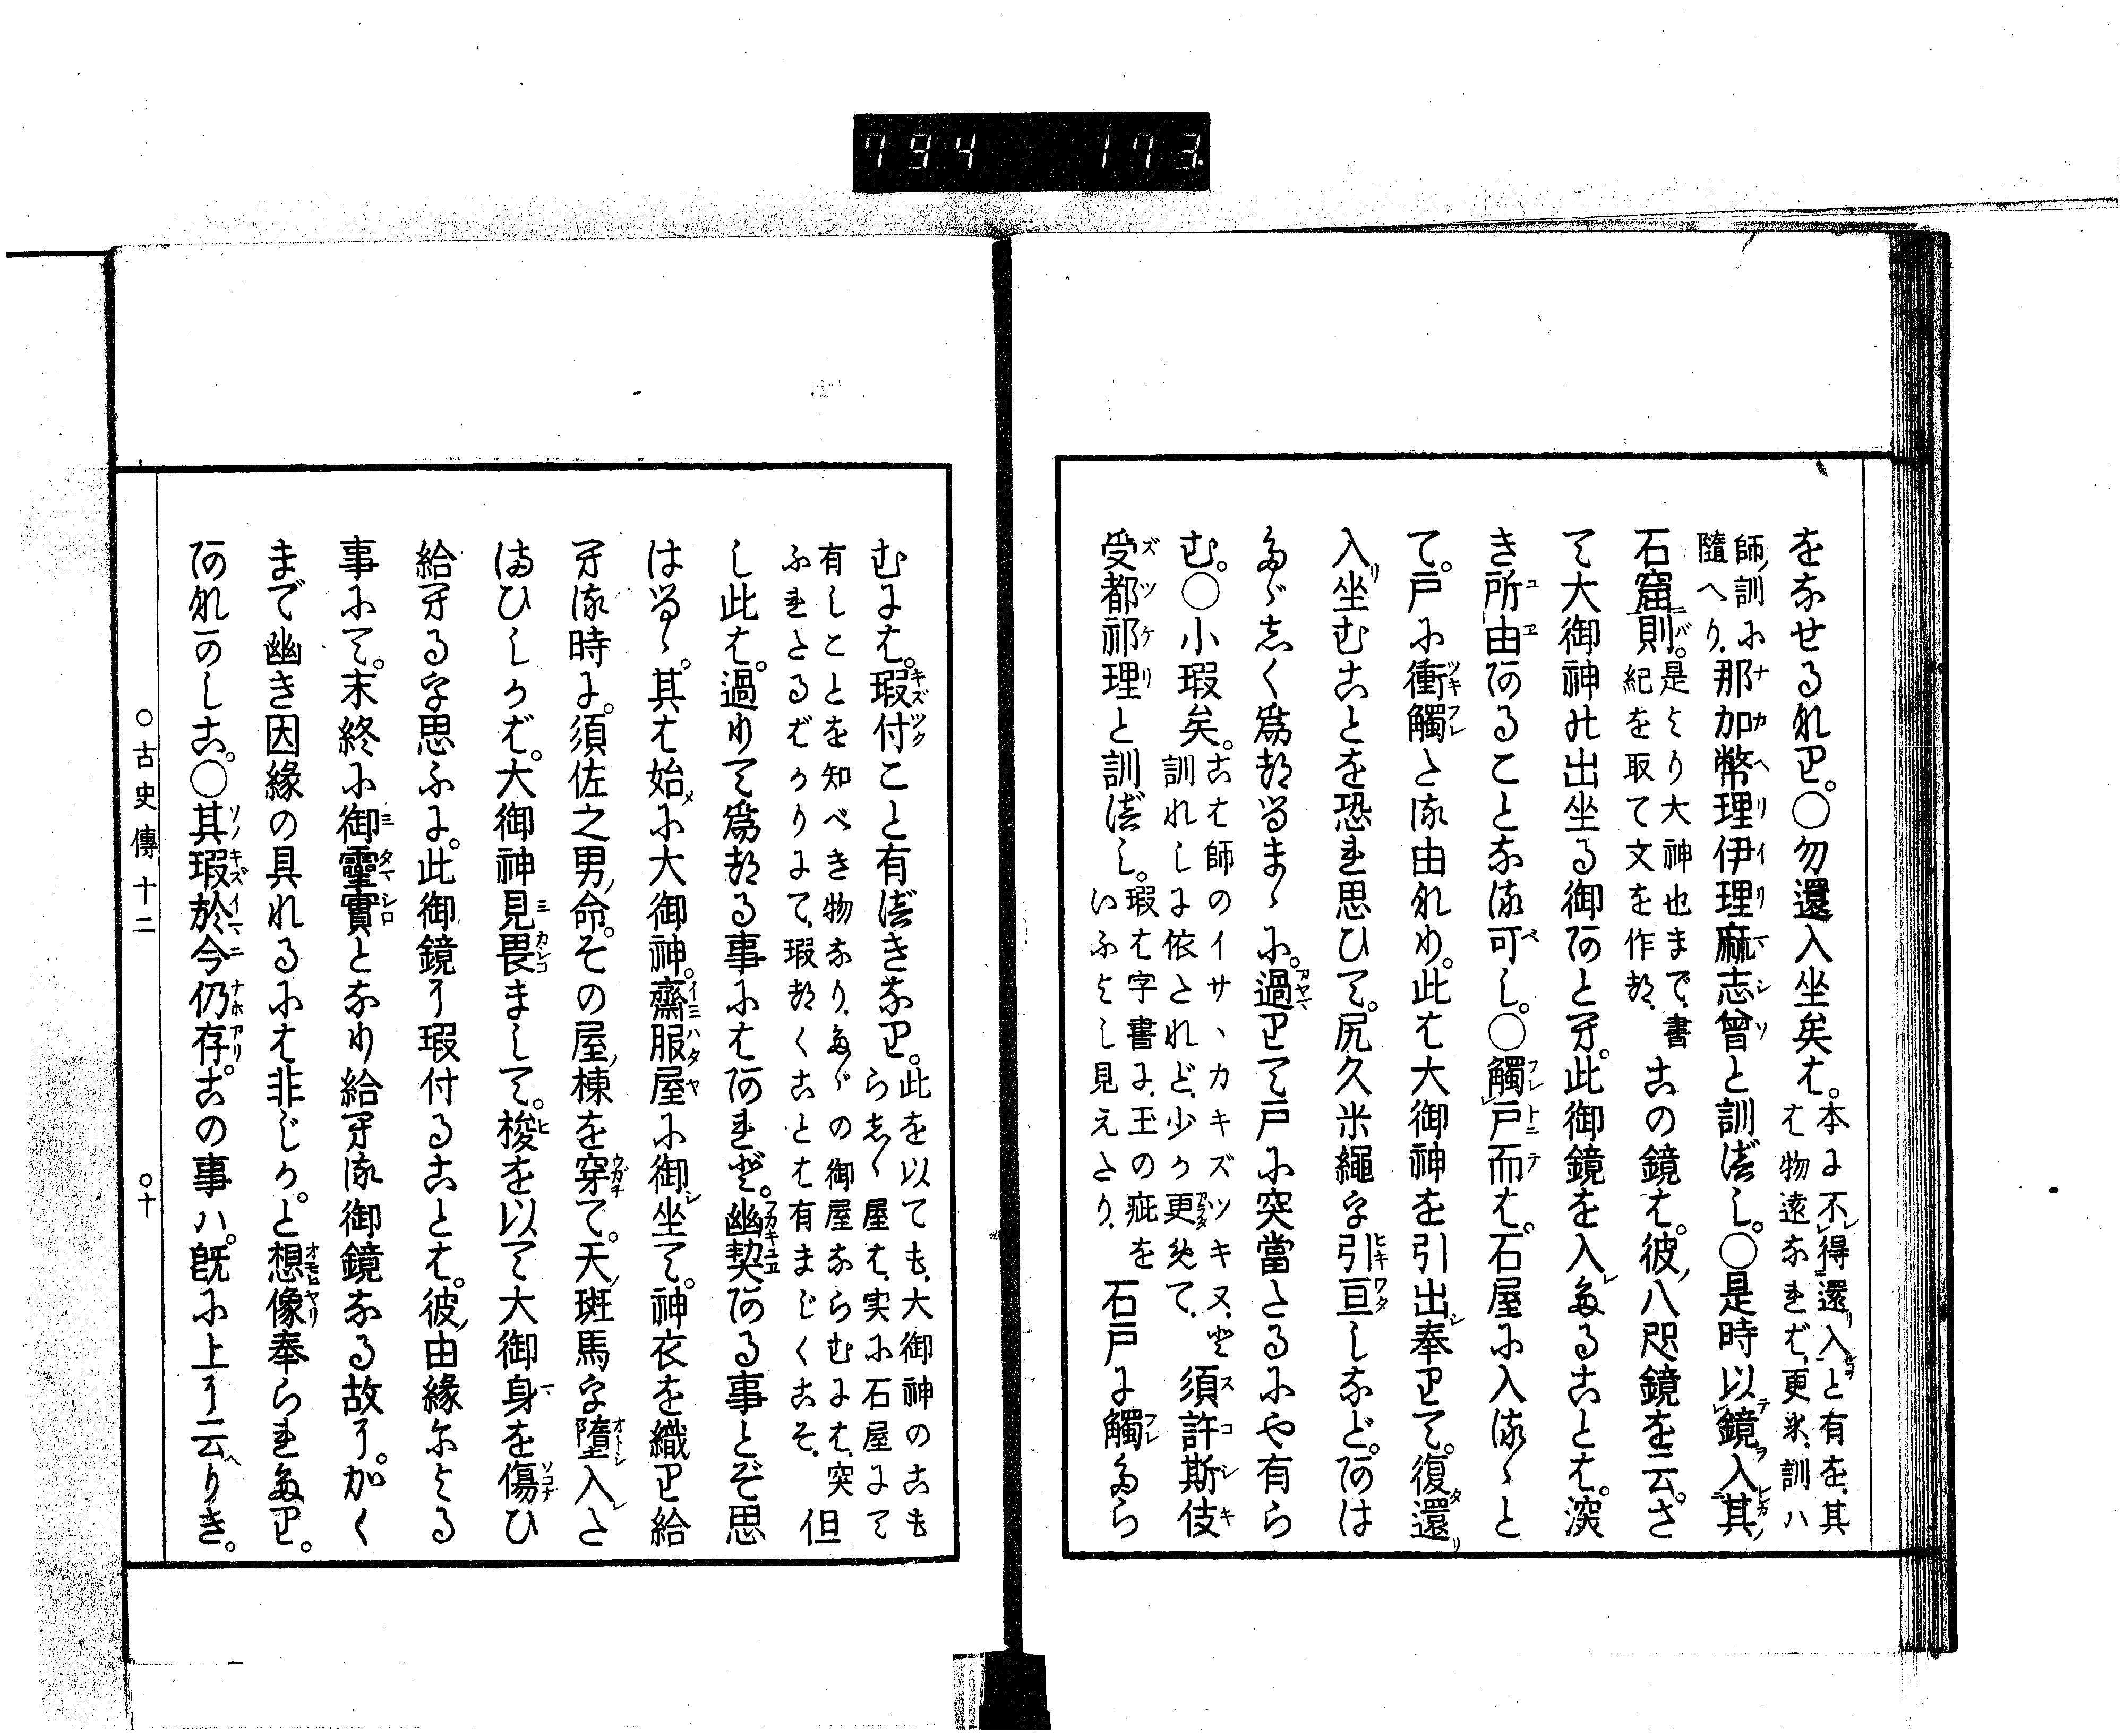 794 173
をなせるなり。〇勿還入坐矣は。本に不得還入と有を、其
は物遠なれば、更め、訓ハ
師ノ訓に
隨へり。那加幣理伊理麻志曾と訓べし。〇是時以鏡入其
石窟則。是より大神也まで、書
紀を取て文を作る。この鏡は。彼ノ八咫鏡を云。さ
て大御神の出坐る御あとへ。此御鏡を入たることは。深
き所由あることなる可し。〇觸戸而は。石屋に入るゝと
て。戸に衝觸たる由なり。此は大御神を引出奉りて。復還
入坐むことを恐れ思ひて。尻久米繩を引亘しなど。あは
たゞしく爲るまゝに。過りて戸に突當たるにや有ら
む。〇小瑕矣。こは師のイサヽカキズツキヌ、と
訓れしに依たれど、少か更めて、須許斯伎
受都祁理と訓べし。瑕は字書に、玉の疵を
いふよし見えたり。石戸に觸たら
むには。瑕付こと有べきなり。此を以ても、大御神のこも
らしゝ屋は、実に石屋にて
有しことを知べき物なり、たゞの御屋ならむには、突
ふれたるばかりにて、瑕つくことは有まじくこそ、但
し此は。過りて爲る事にはあれど。幽契ある事とぞ思
はるゝ。其は始メに大御神。齋服屋に御坐て。神衣を織り給
へる時に。須佐之男ノ命。その屋ノ棟を穿て。天ノ斑馬を墮入た
まひしかば。大御神見畏まして。梭を以て大御身を傷ひ
給へるを思ふに。此御鏡に瑕付ることは。彼ノ由緣による
事にて。末終に御靈實となり給へる御鏡なる故に。かく
まで幽き因緣の具れるには非じか。と想像奉られたり。
あなかしこ。〇其瑕於今仍存。この事ハ。旣に上に云へりき。
〇古史傳十二 〇十